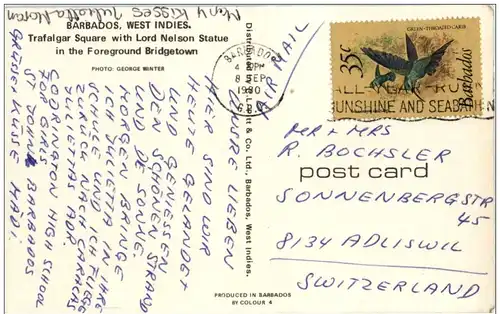 Many Kisses Julietta Moran
BARBADOS, WEST INDIES.
Trafalgar Square with Lord Nelson Statue
in the Foreground Bridgetown
PHOTO: GEORGE WINTER
UNSRE LIEBEN
HIER SIND WIR
HEUTE GELANDET
UND GENIESSEN
DEN SCHÖNEN STRAND
UND DE SONNE.
MORGEN BRINGE
ICH JULIETA IN IHRE
SCHULE UND ICH FLIEGE
ZURÜCK NACH CARACAS
JULIETAS ADR.
CODRINGTON HIGH SCHOOL
FOR GIRLS
ST JOHN BARBADOS
GRÜSSE + KÜSSE MADI.
PRODUCED IN BARBADOS
BY COLOUR 4
& Co. Ltd., Barbados, West Indies.
AIR MAIL
BARBADOS
4 30PM
8 SEP
1980
ALL-YEAR-ROUND
SUNSHINE AND SEABATHING
GREEN-THROATED CARIB
35c
Barbados
MR + MRS
R. BOCHSLER
post card
SONNENBERGSTR
45
8134 ADLISWIL
SWITZERLAND